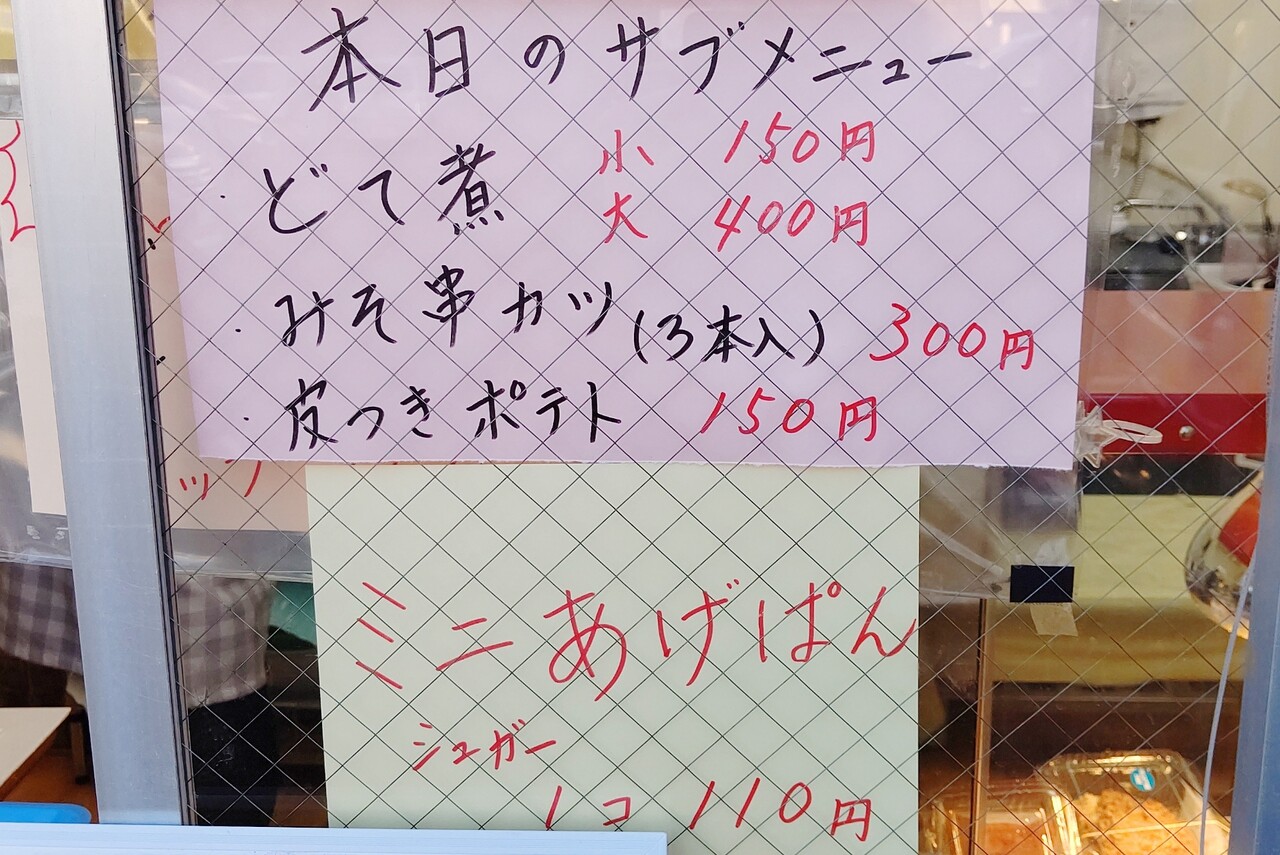 本日のサブメニュー
・どて煮 小 150円
大 400円
・みそ串カツ(3本入) 300円
・皮つきポテト 150円
ミニあげぱん
シュガー
1コ 110円